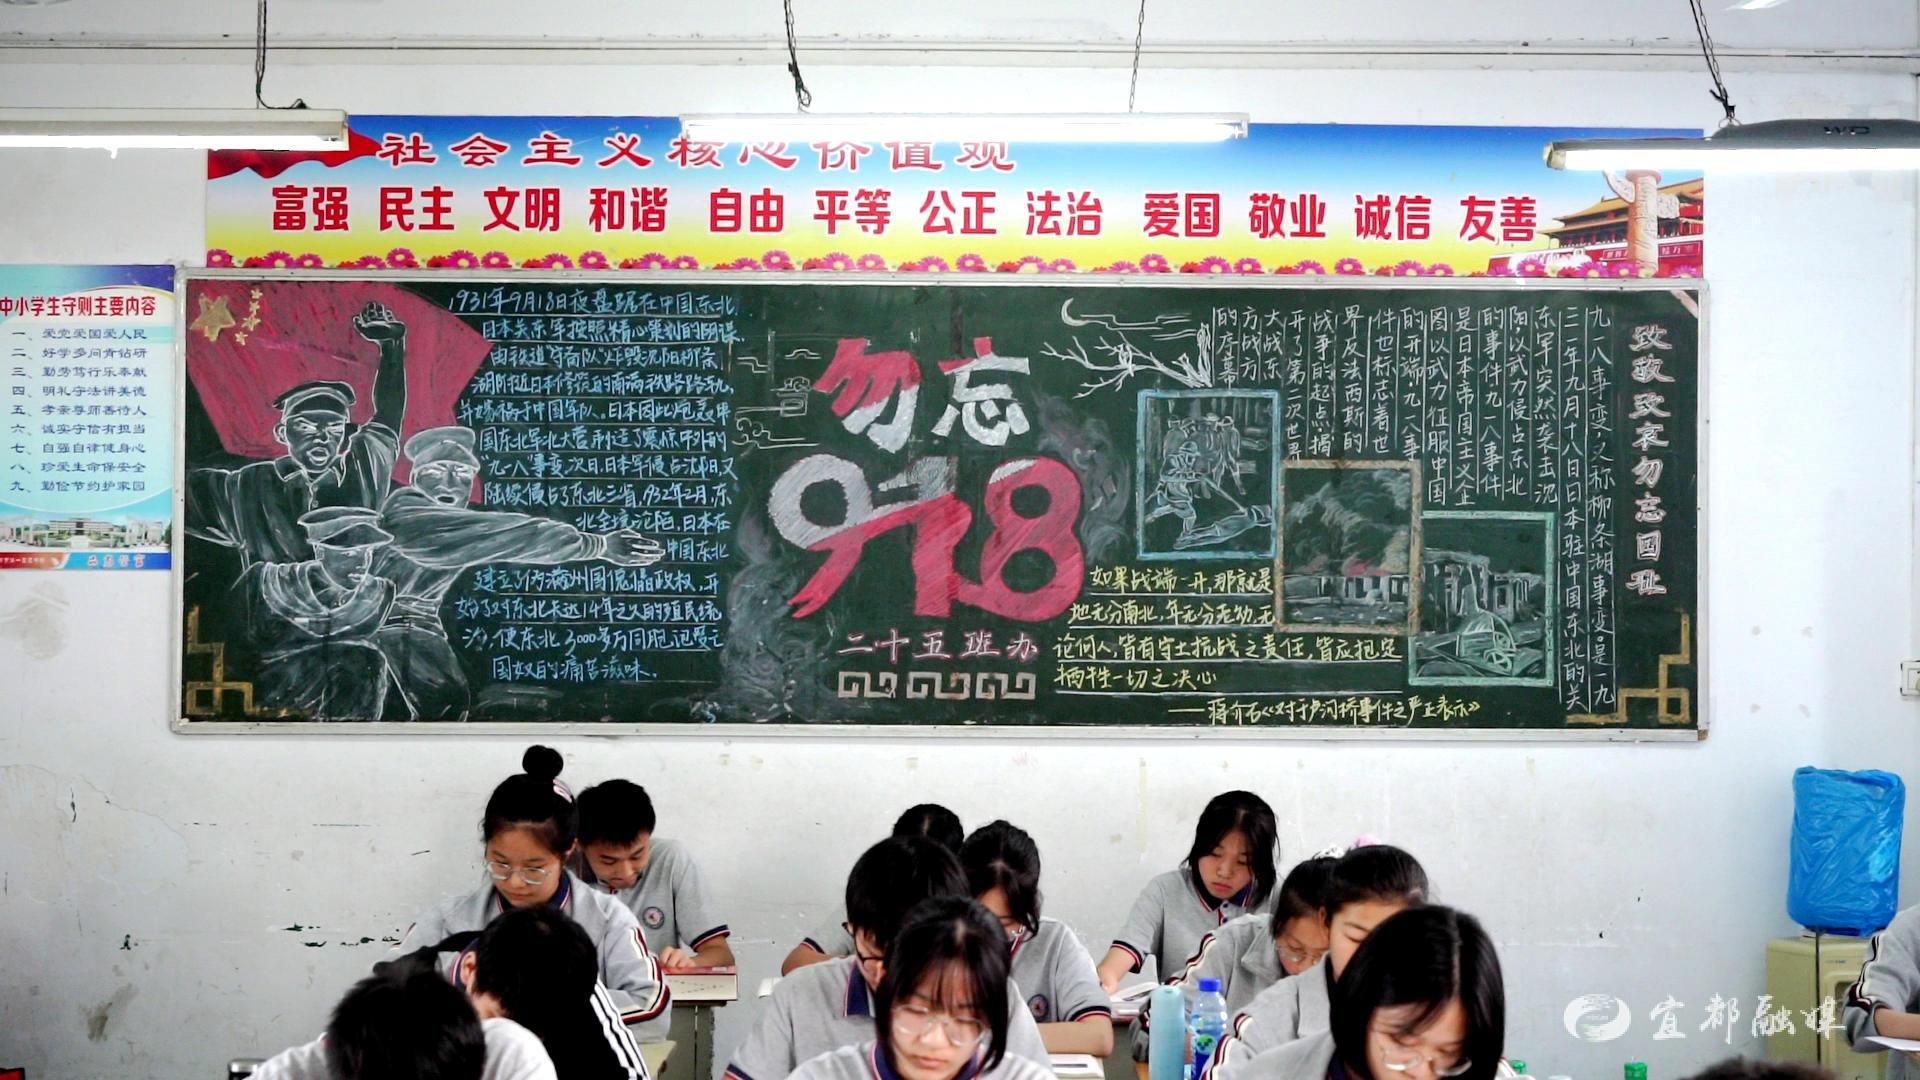 社会主义核心价值观
富强 民主 文明 和谐 自由 平等 公正 法治 爱国 敬业 诚信 友善
中小学生守则主要内容
一、爱党爱国爱人民
二、好学多问肯钻研
三、勤劳笃行乐奉献
四、明礼守法讲美德
五、孝亲尊师善待人
六、诚实守信有担当
七、自强自律健身心
八、珍爱生命保安全
九、勤俭节约护家园
1931年9月18日夜盘踞在中国东北
日本关东军按照精心策划的阴谋,
由铁道"守备队"炸毁沈阳柳条
湖附近日本修筑的南满铁路路轨,
并嫁祸于中国军队。日本因此炮轰中
国东北军北大营,制造了震惊中外的
"九一八"事变,次日,日本军侵占沈阳,又
陆续侵占了东北三省,1932年2月,东
北全境沦陷,日本在
中国东北
建立了伪满州国傀儡政权,开
始了对东北长达14年之久的殖民统
治,使东北3000多万同胞饱受亡
国奴的痛苦滋味.
勿忘
918
二十五班办
致敬致哀勿忘国耻
九一八事变,又称柳条湖事变,是一九
三一年九月十八日日本驻中国东北的关
东军突然袭击沈
阳以武力侵占东北
的事件九一八事件
是日本帝国主义企
图以武力征服中国
的开端,九一八事
件也标志着世
界反法西斯的
战争的起点揭
开了第二次世界
大战东
方战方
的序幕
如果战端一开,那就是
地无分南北,年无分老幼,无
论何人,皆有守土抗战之责任,皆应抱定
牺牲一切之决心
——蒋介石《对于卢沟桥事件之严正表示》
宜都融媒